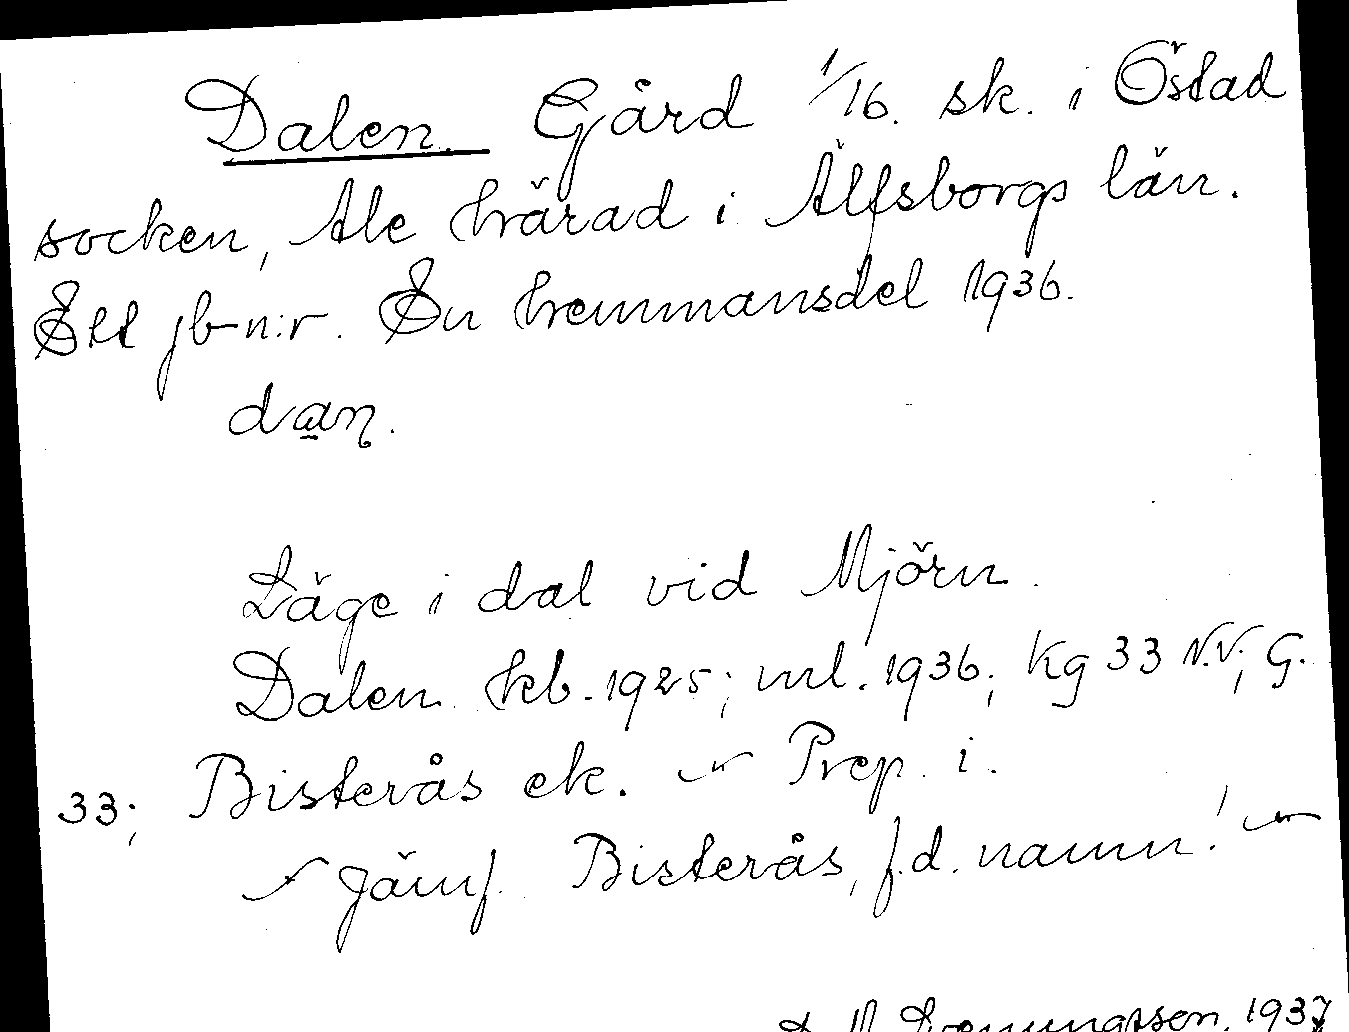 Dalen. Gård 1/16. sk. i Östad
socken, Ale härad i Älfsborgs län.
Ett jb-n:r. En hemmansdel 1936.
dan.
Läge i dal vid Mjörn.
Dalen kb. 1925; ml. 1936; Kg 33 N.V; G.
33; Bisterås ek. – Prep. i.
– Jämf. Bisterås, f.d. namn! –
1937